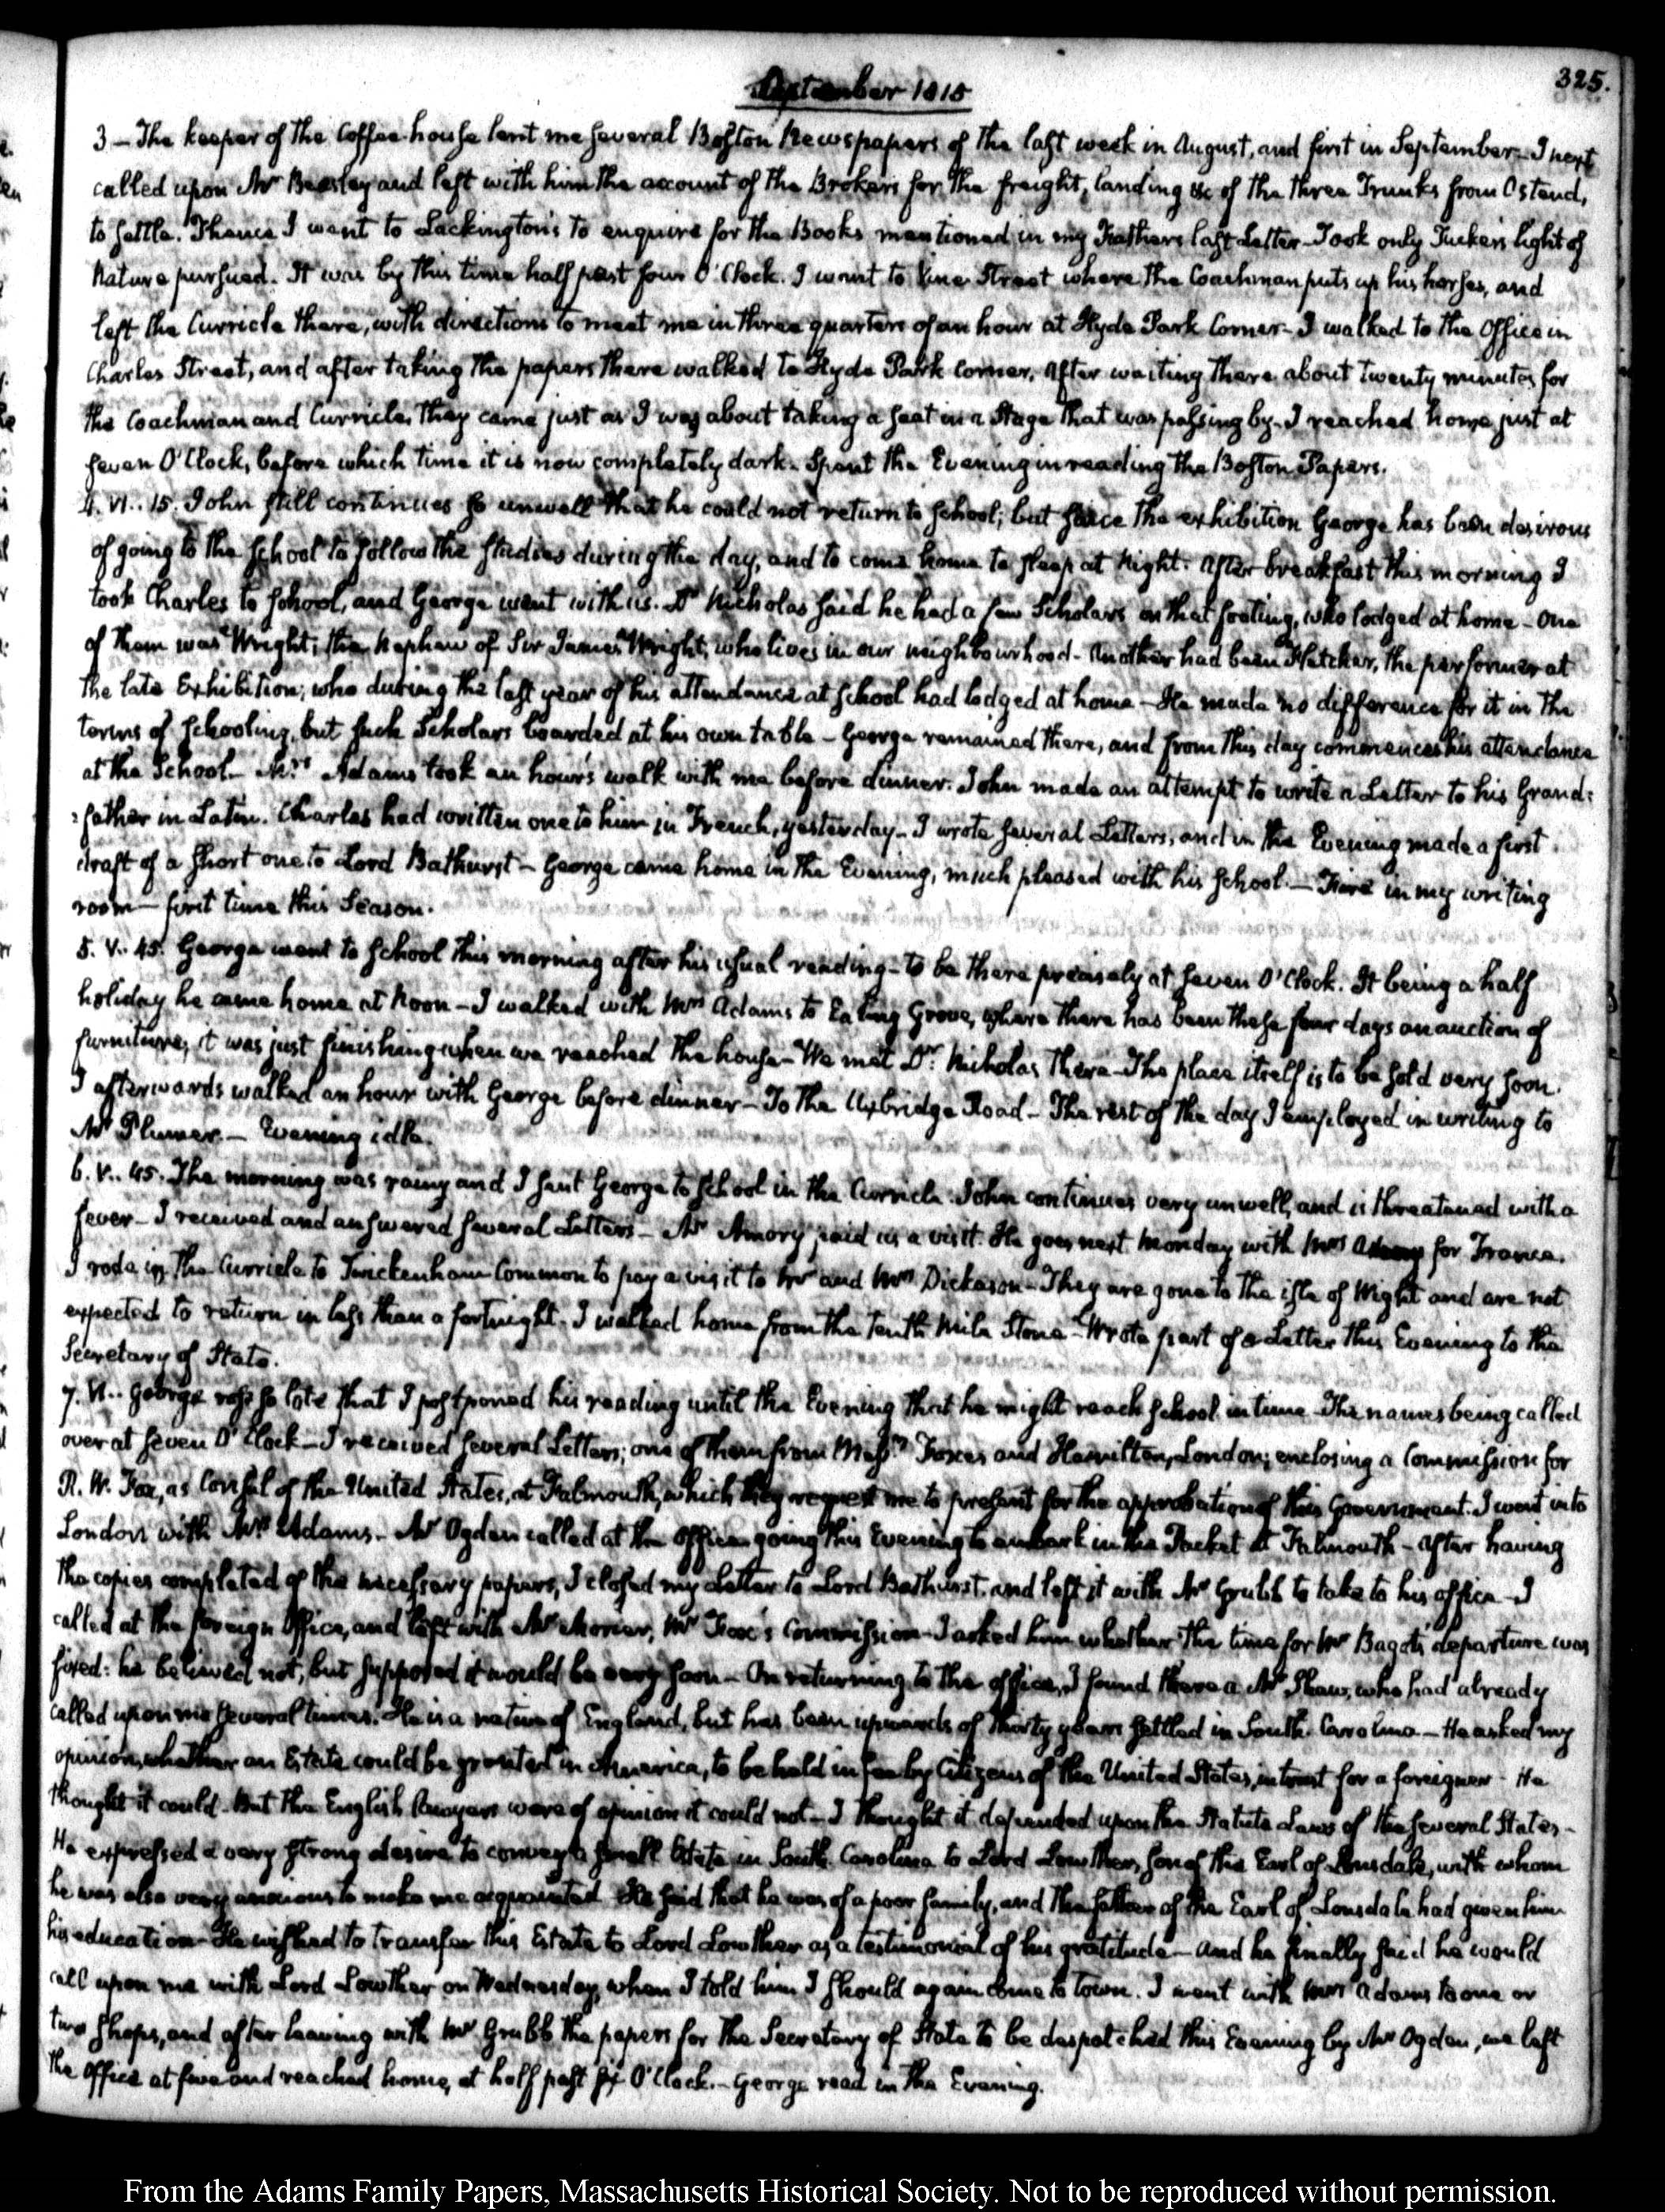 September 1815
325.
3 – The keeper of the Coffee-house lent me several Boston Newspapers of the last week in August, and first in September – I next
called upon Mr Beasley and left with him the account of the Brokers for the freight, landing &c of the three Trunks from Ostend,
to settle. Thence I went to Lackington's to enquire for the Books mentioned in my Father's last Letter – Took only Tucker's light of
Nature pursued. It was by this time half past four O'Clock. I went to Vine Street where the Coachman puts up his horses, and
left the Curricle there, with directions to meet me in three quarters of an hour at Hyde Park Corner – I walked to the Office in
Charles Street, and after taking the papers there walked to Hyde Park Corner. After waiting there about twenty minutes for
the Coachman and Curricle, they came just as I was about taking a seat in a Stage that was passing by – I reached home just at
seven O'Clock, before which time it is now completely dark. Spent the Evening in reading the Boston Papers.
4. VI.. 15. John still continues so unwell that he could not return to school; but since the exhibition George has been desirous
of going to the school to follow the studies during the day, and to come home to sleep at Night. After breakfast this morning I
took Charles to school, and George went with us. Dr Nicholas said he had a few Scholars on that footing, who lodged at home – One
of them was Wright, the Nephew of Sir James Wright, who lives in our neighbourhood – Another had been Hatcher, the performer at
the late Exhibition; who during the last year of his attendance at school had lodged at home – He made no difference for it in the
terms of schooling, but such Scholars boarded at his own table – George remained there, and from this day commences his attendance
at the School – Mrs Adams took an hour's walk with me before dinner. John made an attempt to write a Letter to his Grand:
:father in Latin. Charles had written one to him in French, yesterday – I wrote several Letters, and in the Evening made a first
draft of a short one to Lord Bathurst – George came home in the Evening, much pleased with his school. – Fire in my writing
room – first time this Season.
5. V.. 45. George went to school this morning after his usual reading – to be there precisely at seven O'Clock. It being a half
holiday he came home at Noon – I walked with Mrs Adams to Ealing Grove, where there has been these four days an auction of
furniture; it was just finishing when we reached the house – We met Dr. Nicholas there – The place itself is to be sold very soon.
I afterwards walked an hour with George before dinner – To the Uxbridge Road – The rest of the day I employed in writing to
Mr Plumer. – Evening idle.
6. V.. 45. The morning was rainy and I sent George to school in the Curricle. John continues very unwell, and is threatened with a
fever – I received and answered several Letters – Mr Amory paid us a visit. He goes next Monday with Mrs for France.
I rode in the Curricle to Twickenham Common to pay a visit to Mr and Mrs Dickason – They are gone to the isle of Wight and are not
expected to return in less than a fortnight. I walked home from the tenth Mile Stone – Wrote part of a Letter this Evening to the
Secretary of State.
7. VI.. George rose so late that I postponed his reading until the Evening that he might reach school in time – The names being called
over at seven O'Clock – I received several Letters; one of them from Messrs Foxes and Hamilton, London; enclosing a Commission for
R. W. Fox, as Consul of the United States, at Falmouth, which they request me to present for the approbation of this Government. I went into
London with Mrs Adams – Mr Ogden called at the Office going this Evening to embark in the Packet at Falmouth – After having
the copies completed of the necessary papers, I closed my Letter to Lord Bathurst, and left it with Mr Grubb to take to his office – I
called at the foreign Office, and left with Mr Morier, Mr Fox's Commission – I asked him whether the time for Mr Bagot's departure was
fixed: he believed not; but supposed it would be very soon – On returning to the office, I found there a Mr Shaw, who had already
called upon me several times. He is a native of England, but has been upwards of thirty years settled in South Carolina – He asked my
opinion, whether an Estate could be granted in America, to be held in fee by Citizens of the United States, in trust for a foreigner – He
thought it could – But the English lawyers were of opinion it could not – I thought it depended upon the Statute Laws of the several States –
He expressed a very strong desire to convey a small Estate in South Carolina to Lord Lowther, son of the Earl of Lonsdale, with whom
he was also very anxious to make me acquainted. He said that he was of a poor family, and the father of the Earl of Lonsdale had given him
his education – He wished to transfer this Estate to Lord Lowther as a testimonial of his gratitude – and he finally said he would
call upon me with Lord Lowther on Wednesday, when I told him I should again come to town. I went with Mrs Adams to one or
two shops, and after leaving with Mr Grubb the papers for the Secretary of State to be despatched this Evening by Mr Ogden, we left
the Office at five and reached home, at half past six O'Clock. – George read in the Evening.
From the Adams Family Papers, Massachusetts Historical Society. Not to be reproduced without permission.